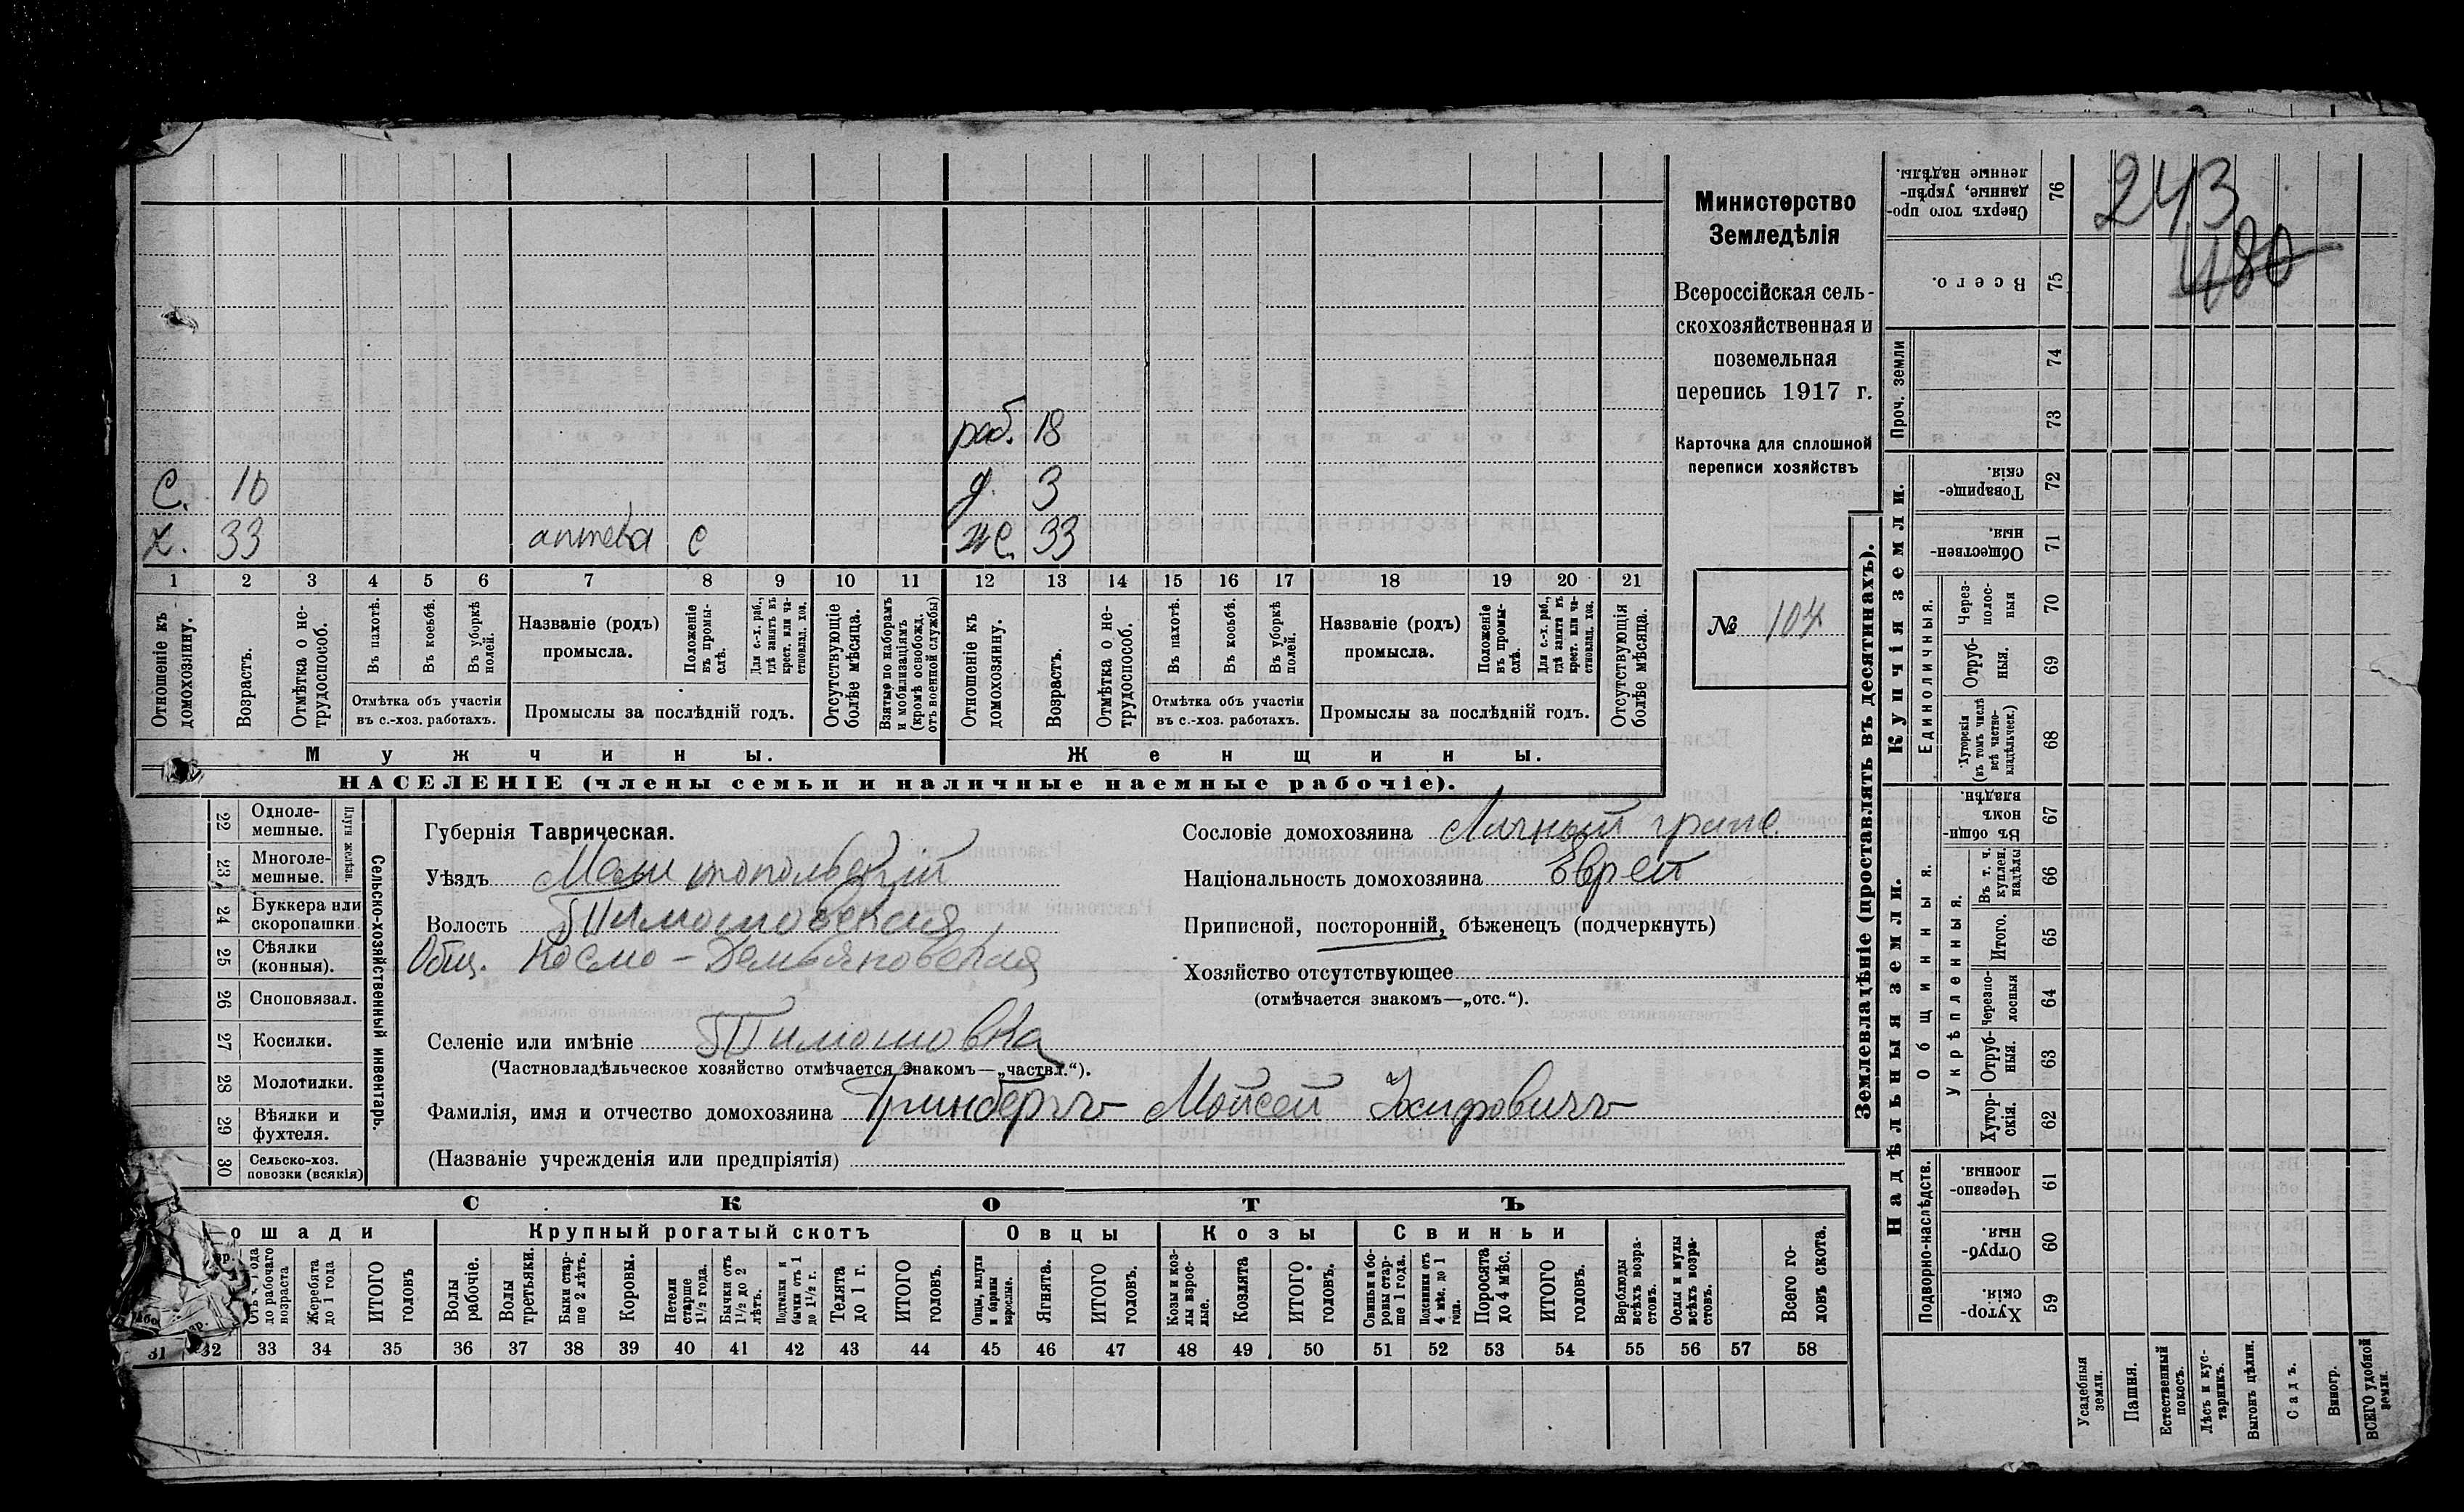 243
480
Министерство
Земледѣлія
Всероссійская сель-
скохозяйственная и
поземельная
перепись 1917 г.
Карточка для сплошной
переписи хозяйствъ
№ 104
раб. 18
С. 10 д. 3
х. 33 аптека с же. 33
1 2 3 4 5 6 7 8 9 10 11 12 13 14 15 16 17 18 19 20 21
Отношеніе къ домохозяину.
Возрастъ.
Отмѣтка о не-трудоспособ.
Въ пахотѣ.
Въ косьбѣ.
Въ уборкѣ полей.
Отмѣтка объ участіи
въ с.-хоз. работахъ.
Названіе (родъ)
промысла.
Положеніе въ промы-слѣ.
Для с.-х. раб., гдѣ занятъ въ крест. или ча-стновлад. хоз.
Промыслы за послѣдній годъ.
Отсутствующіе болѣе мѣсяца.
Взятые по наборамъ и мобилизаціямъ (кромѣ освобожд. отъ военной службы)
Отношеніе къ домохозяину.
Возрастъ.
Отмѣтка о не-трудоспособ.
Въ пахотѣ.
Въ косьбѣ.
Въ уборкѣ полей.
Отмѣтка объ участіи
въ с.-хоз. работахъ.
Названіе (родъ)
промысла.
Положеніе въ промы-слѣ.
Для с.-х. раб., гдѣ занята въ крест. или ча-стновлад. хоз.
Промыслы за послѣдній годъ.
Отсутствующія болѣе мѣсяца.
Мужчины. Женщины.
НАСЕЛЕНІЕ (члены семьи и наличные наемные рабочіе).
Сельско-хозяйственный инвентарь.
Плуги желѣзн.
22 Одноле-мешные.
23 Многоле-мешные.
24 Буккера или скоропашки
25 Сѣялки (конныя).
26 Сноповязал.
27 Косилки.
28 Молотилки.
29 Вѣялки и фухтеля.
30 Сельско-хоз. повозки (всякія)
Губернія Таврическая.
Уѣздъ Мелитопольскій
Волость Тимошовская
Общ. Космо-Демьяновская
Селеніе или имѣніе Тимошовка
(Частновладѣльческое хозяйство отмѣчается знакомъ—„частвл.“).
Фамилія, имя и отчество домохозяина Гринбергъ Мойсей
(Названіе учрежденія или предпріятія)
Сословіе домохозяина Личный гражд.
Національность домохозяина Еврей
Приписной, посторонній, бѣженецъ (подчеркнуть)
Хозяйство отсутствующее
(отмѣчается знакомъ—„отс.“).
СКОТЪ
ошади Крупный рогатый скотъ Овцы Козы Свиньи
до рабочаго возраста
Жеребята до 1 года
ИТОГО головъ
Волы рабочіе.
Волы третьяки.
Быки стар-ше 2 лѣтъ.
Коровы.
Нетели старше 1½ года.
Бычки отъ 1½ до 2 лѣтъ.
Подтелки и бычки отъ 1 до 1½ г.
Телята до 1 г.
ИТОГО головъ.
Овцы, валухи и бараны взрослые.
Ягнята.
ИТОГО головъ.
Козы и коз-лы взрос-лые.
Козлята
ИТОГО головъ.
Свиньи и бо-ровы стар-ше 1 года.
Подсвинки отъ 4 мѣс. до 1 года.
Поросята до 4 мѣс.
ИТОГО головъ.
Верблюды всѣхъ возра-стовъ.
Ослы и мулы всѣхъ возра-стовъ.
Всего го-ловъ скота.
31 32 33 34 35 36 37 38 39 40 41 42 43 44 45 46 47 48 49 50 51 52 53 54 55 56 57 58
Землевладѣніе (проставлять въ десятинахъ).
Купчія земли.
Надѣльныя земли.
Сверхъ того про-данные, укрѣп-ленные надѣлы. 76
Всего. 75
Проч. земли
74
73
Товарище-скія. 72
Обществен-ныя. 71
Единоличныя.
Через-полос-ныя 70
Отруб-ныя. 69
Хуторскія (въ томъ числѣ всѣ частно-владѣльческ.) 68
Общинныя.
Въ общи-номъ владѣн. 67
Укрѣпленныя.
Въ т. ч. куплен. надѣлы 66
Итого. 65
Черезпо-лосныя 64
Отруб-ныя. 63
Хутор-скія. 62
Подворно-наслѣдств.
Черезпо-лосныя. 61
Отруб-ныя. 60
Хутор-скія. 59
Усадебныя земли.
Пашня.
Естественный покосъ.
Лѣсъ и кус-тарникъ.
Выгонъ цѣлин.
Садъ.
Виногр.
ВСЕГО удобной земли.